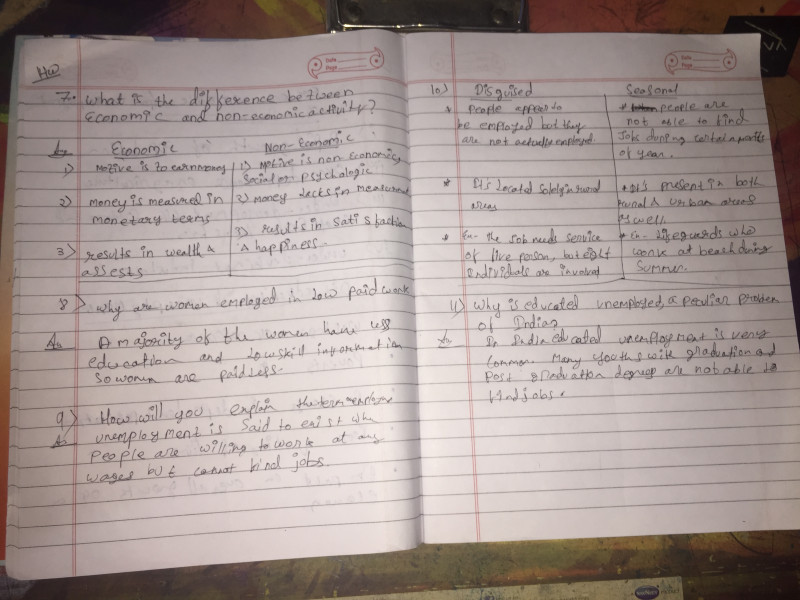 HW
7. what is the difference between
Economic and non-economic activity?
A. Economic
Non-Economic
1) Motive is to earn money
1) Motive is non Economic,
Social or psychologic
2) money is measured in
monetary terms
2) money lacks in measurement
3) results in wealth &
assests
3) results in satisfaction
& happiness.
8) why are women employed in low paid work
A. A majority of the women have less
education and low skill information
so women are paid less.
9) How will you explain the term
A. unemployment is said to exist when
people are willing to work at any
wages but cannot find jobs.
Date
Page
10) Disguised
Seasonal
* People appear to
be employed but they
are not actually employed.
* people are
not able to find
Job during certain parts
of year.
* It's located solely in rural
areas
* It's present in both
rural & urban areas
as well.
* Ex- the job needs service
of five person, but eight
individuals are involved
* Ex- lifeguards who
work at beach during
summer.
11) Why is educated unemployed, a Peculiar Problem
of India?
A. In India educated unemployment is very
common. Many youths with graduation and
post graduation degree are not able to
find jobs.
Date
Page